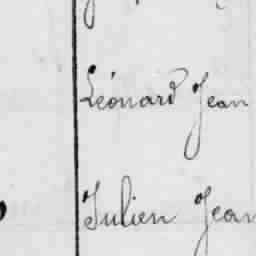 Léonard Jean
Julien Jean